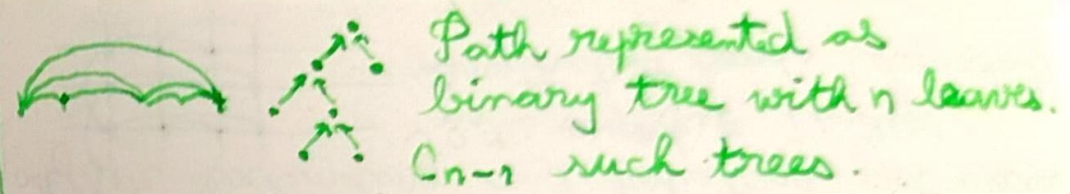 Path represented as
binary tree with n leaves.
C_{n-1} such trees.